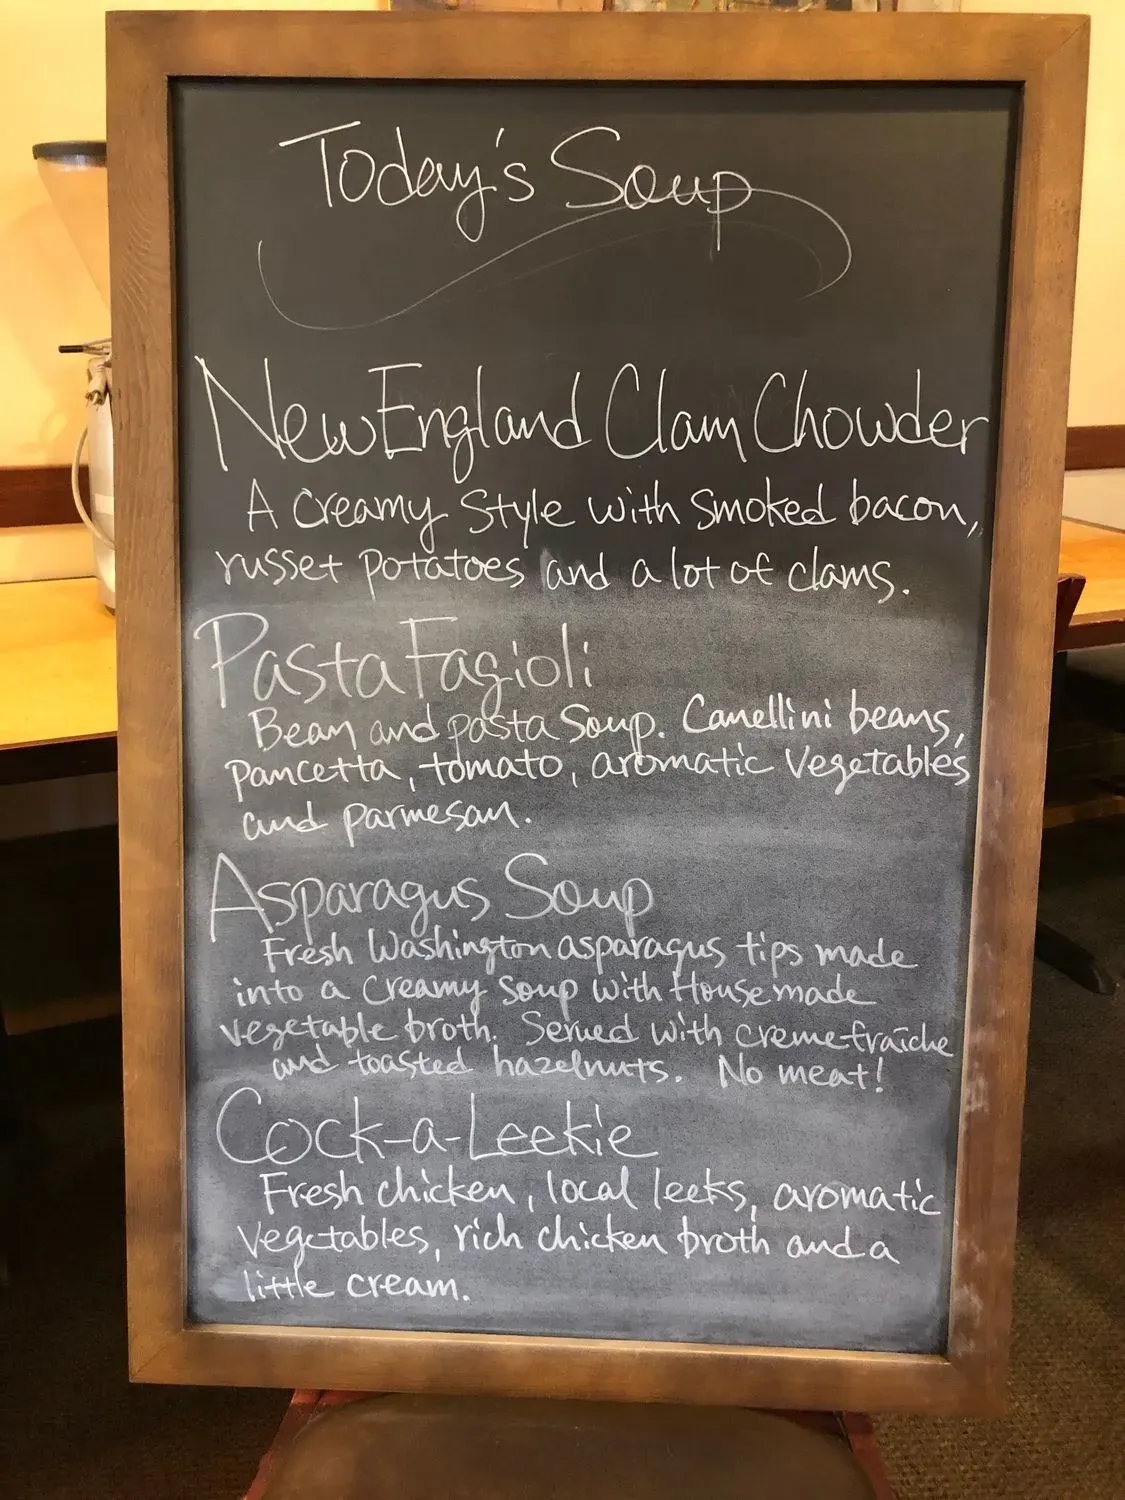 Today's Soup
New England Clam Chowder
A Creamy Style with smoked bacon,
russet potatoes and a lot of clams.
Pasta Fagioli
Bean and pasta Soup. Canellini beans,
pancetta, tomato, aromatic Vegetables
and parmesan.
Asparagus Soup
Fresh Washington asparagus tips made
into a Creamy Soup with Housemade
vegetable broth. Served with creme fraîche
and toasted hazelnuts. No meat!
Cock-a-Leekie
Fresh chicken, local leeks, aromatic
Vegetables, rich chicken broth and a
little cream.